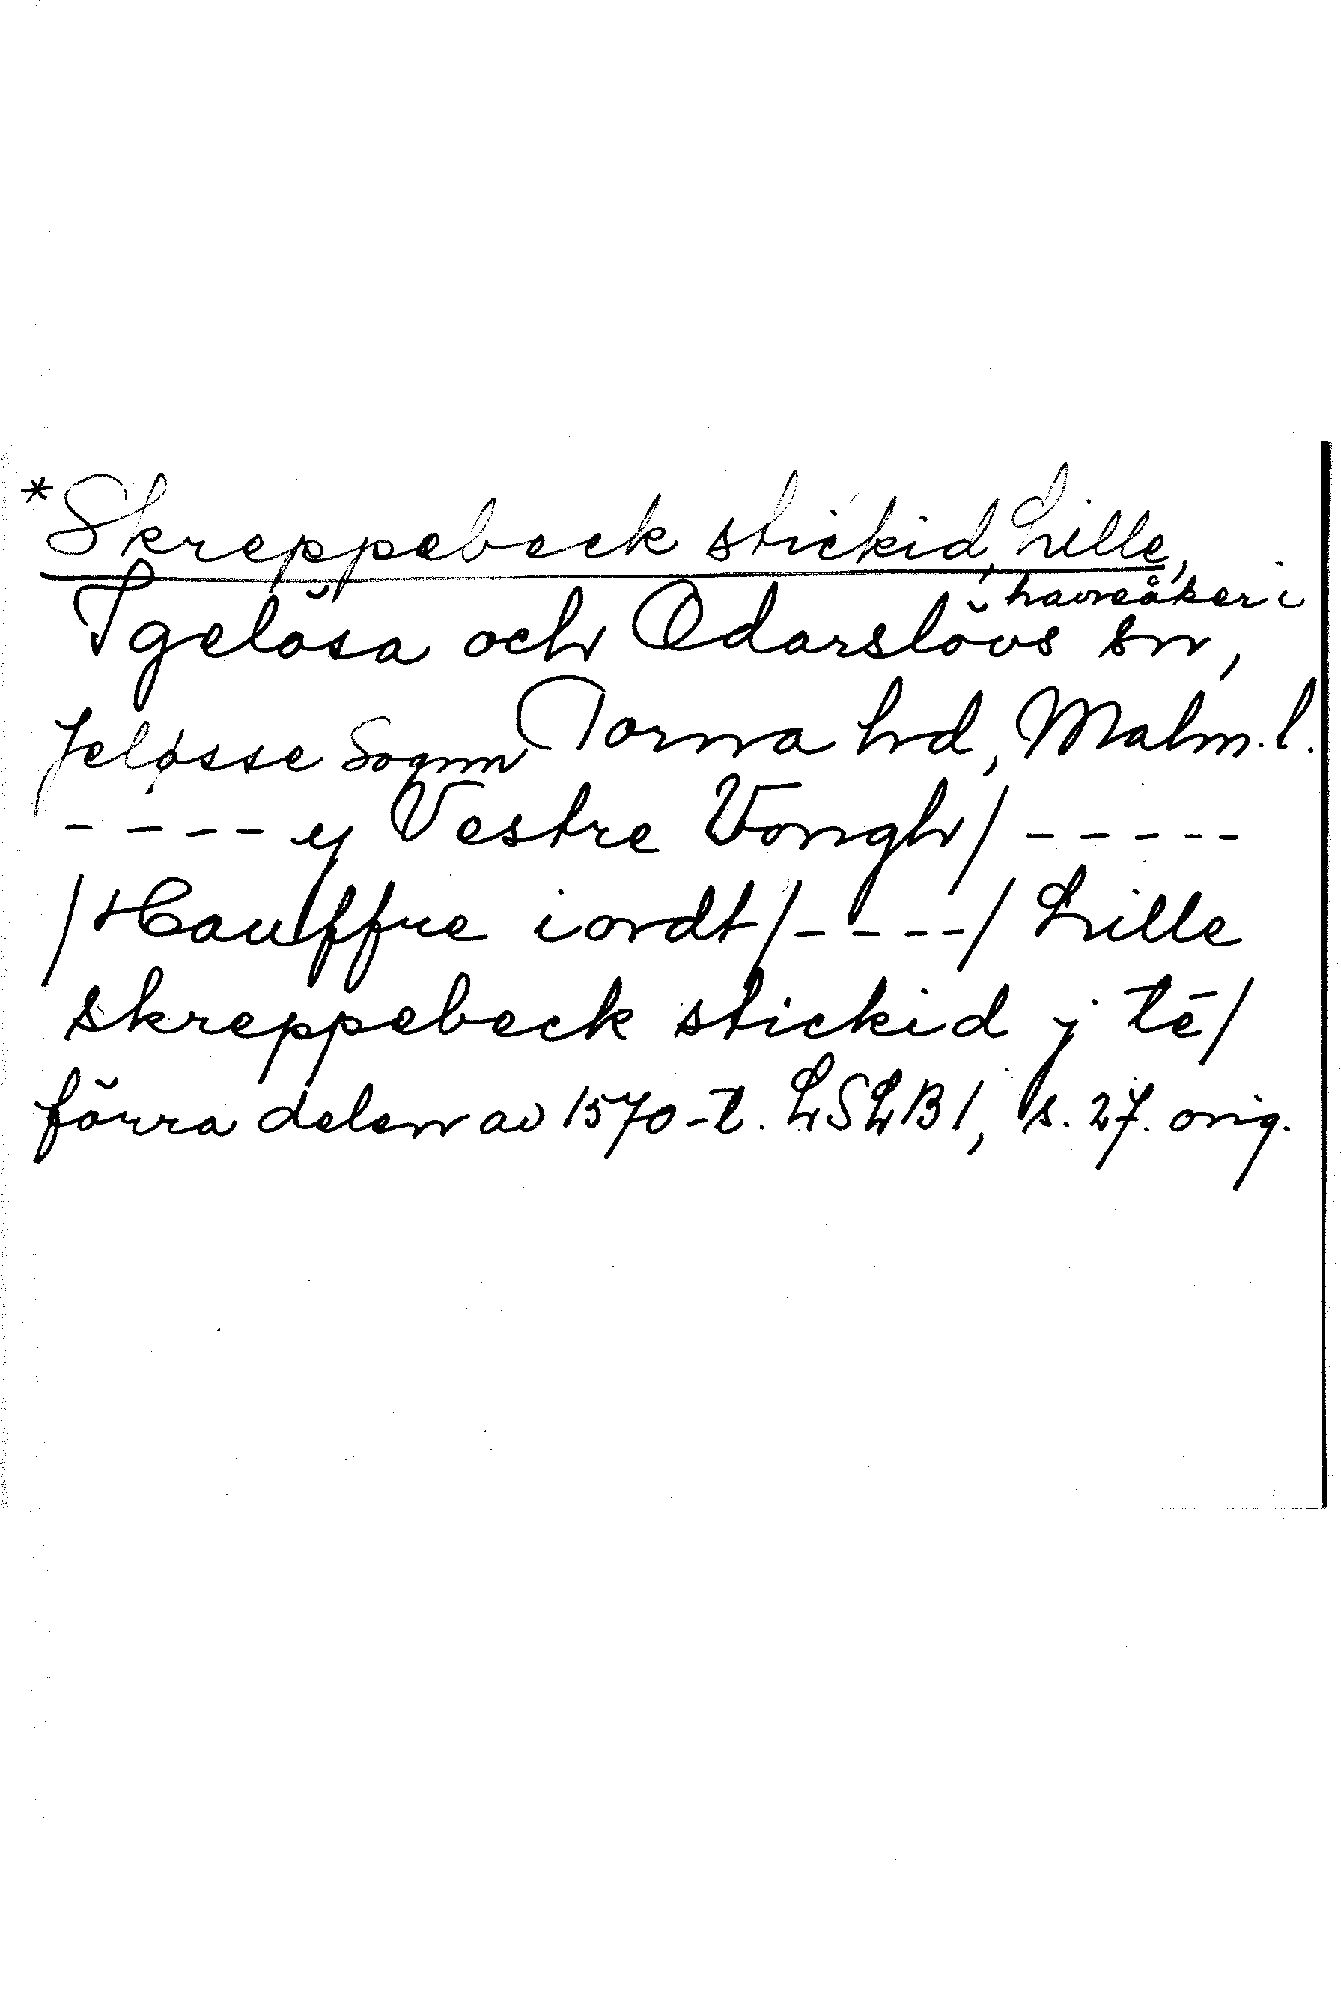 *Skreppebeck stickid, Lille,
havreåker i
Igelösa och Odarslövs sn,
Torna hd, Malm. l.
Jeløsse Sognn
---- y Vestre Vongh/ -----
/Hauffre iordt/----/ Lille
skreppebeck stickid j tē/
förra delen av 1570-t. LSLB 1, s. 27. orig.